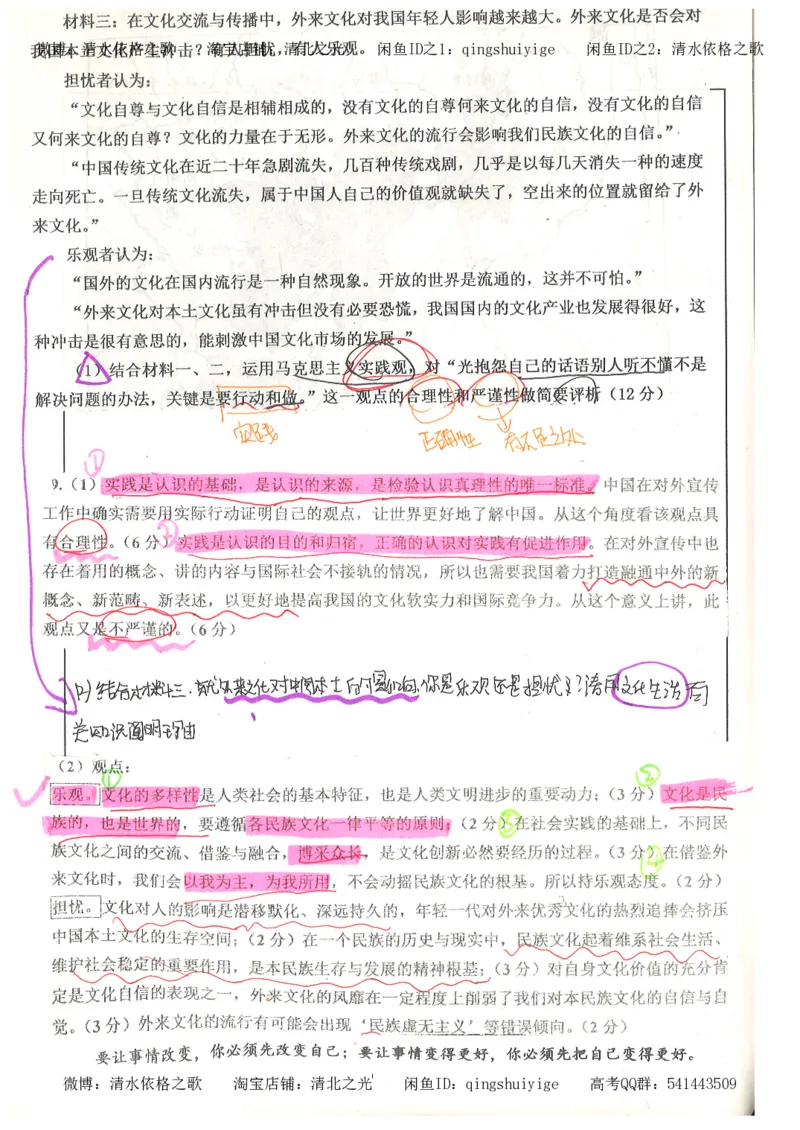 材料三：在文化交流与传播中，外来文化对我国年轻人影响越来越大。外来文化是否会对
我国本土文化产生冲击？有人担忧，有人乐观。
微博：清水依格之歌 淘宝店铺：清北之光 闲鱼ID之1：qingshuiyige 闲鱼ID之2：清水依格之歌
担忧者认为：
“文化自尊与文化自信是相辅相成的，没有文化的自尊何来文化的自信，没有文化的自信
又何来文化的自尊？文化的力量在于无形。外来文化的流行会影响我们民族文化的自信。”
“中国传统文化在近二十年急剧流失，几百种传统戏剧，几乎是以每几天消失一种的速度
走向死亡。一旦传统文化流失，属于中国人自己的价值观就缺失了，空出来的位置就留给了外
来文化。”
乐观者认为：
“国外的文化在国内流行是一种自然现象。开放的世界是流通的，这并不可怕。”
“外来文化对本土文化虽有冲击但没有必要恐慌，我国国内的文化产业也发展得很好，这
种冲击是很有意思的，能刺激中国文化市场的发展。”
（1）结合材料一、二，运用马克思主义实践观，对“光抱怨自己的话语别人听不懂不是
解决问题的办法，关键是要行动和做。”这一观点的合理性和严谨性做简要评析（12 分）
实践 正确性 有不足之处
①
9.（1）实践是认识的基础，是认识的来源，是检验认识真理性的唯一标准。中国在对外宣传
工作中确实需要用实际行动证明自己的观点，让世界更好地了解中国。从这个角度看该观点具
有合理性。（6 分）②实践是认识的目的和归宿，正确的认识对实践有促进作用。在对外宣传中也
存在着用的概念、讲的内容与国际社会不接轨的情况，所以也需要我国着力打造融通中外的新
概念、新范畴、新表述，以更好地提高我国的文化软实力和国际竞争力。从这个意义上讲，此
观点又是不严谨的。（6 分）
(2) 结合材料三，就外来文化对中国本土的影响，你是乐观还是担忧？请用文化生活有
关知识阐明理由
（2）观点：
① ②
乐观。文化的多样性是人类社会的基本特征，也是人类文明进步的重要动力；（3 分）文化是民
族的，也是世界的，要遵循各民族文化一律平等的原则；（2 分）③在社会实践的基础上，不同民
族文化之间的交流、借鉴与融合，博采众长，是文化创新必然要经历的过程。（3 分）④在借鉴外
来文化时，我们会以我为主，为我所用，不会动摇民族文化的根基。所以持乐观态度。（2 分）
担忧。文化对人的影响是潜移默化、深远持久的，年轻一代对外来优秀文化的热烈追捧会挤压
中国本土文化的生存空间；（2 分）在一个民族的历史与现实中，民族文化起着维系社会生活、
维护社会稳定的重要作用，是本民族生存与发展的精神根基；（3 分）对自身文化价值的充分肯
定是文化自信的表现之一，外来文化的风靡在一定程度上削弱了我们对本民族文化的自信与自
觉。（3 分）外来文化的流行有可能会出现‘民族虚无主义’等错误倾向。（2 分）
要让事情改变，你必须先改变自己；要让事情变得更好，你必须先把自己变得更好。
微博：清水依格之歌 淘宝店铺：清北之光 闲鱼ID：qingshuiyige 高考QQ群：541443509